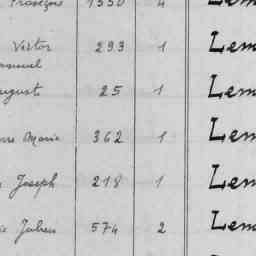 François 1350 4 Lem
Victor 293 1 Lem
Auguste 25 1 Lem
Marie 362 1 Lem
Joseph 218 1 Lem
Julien 574 2 Lem